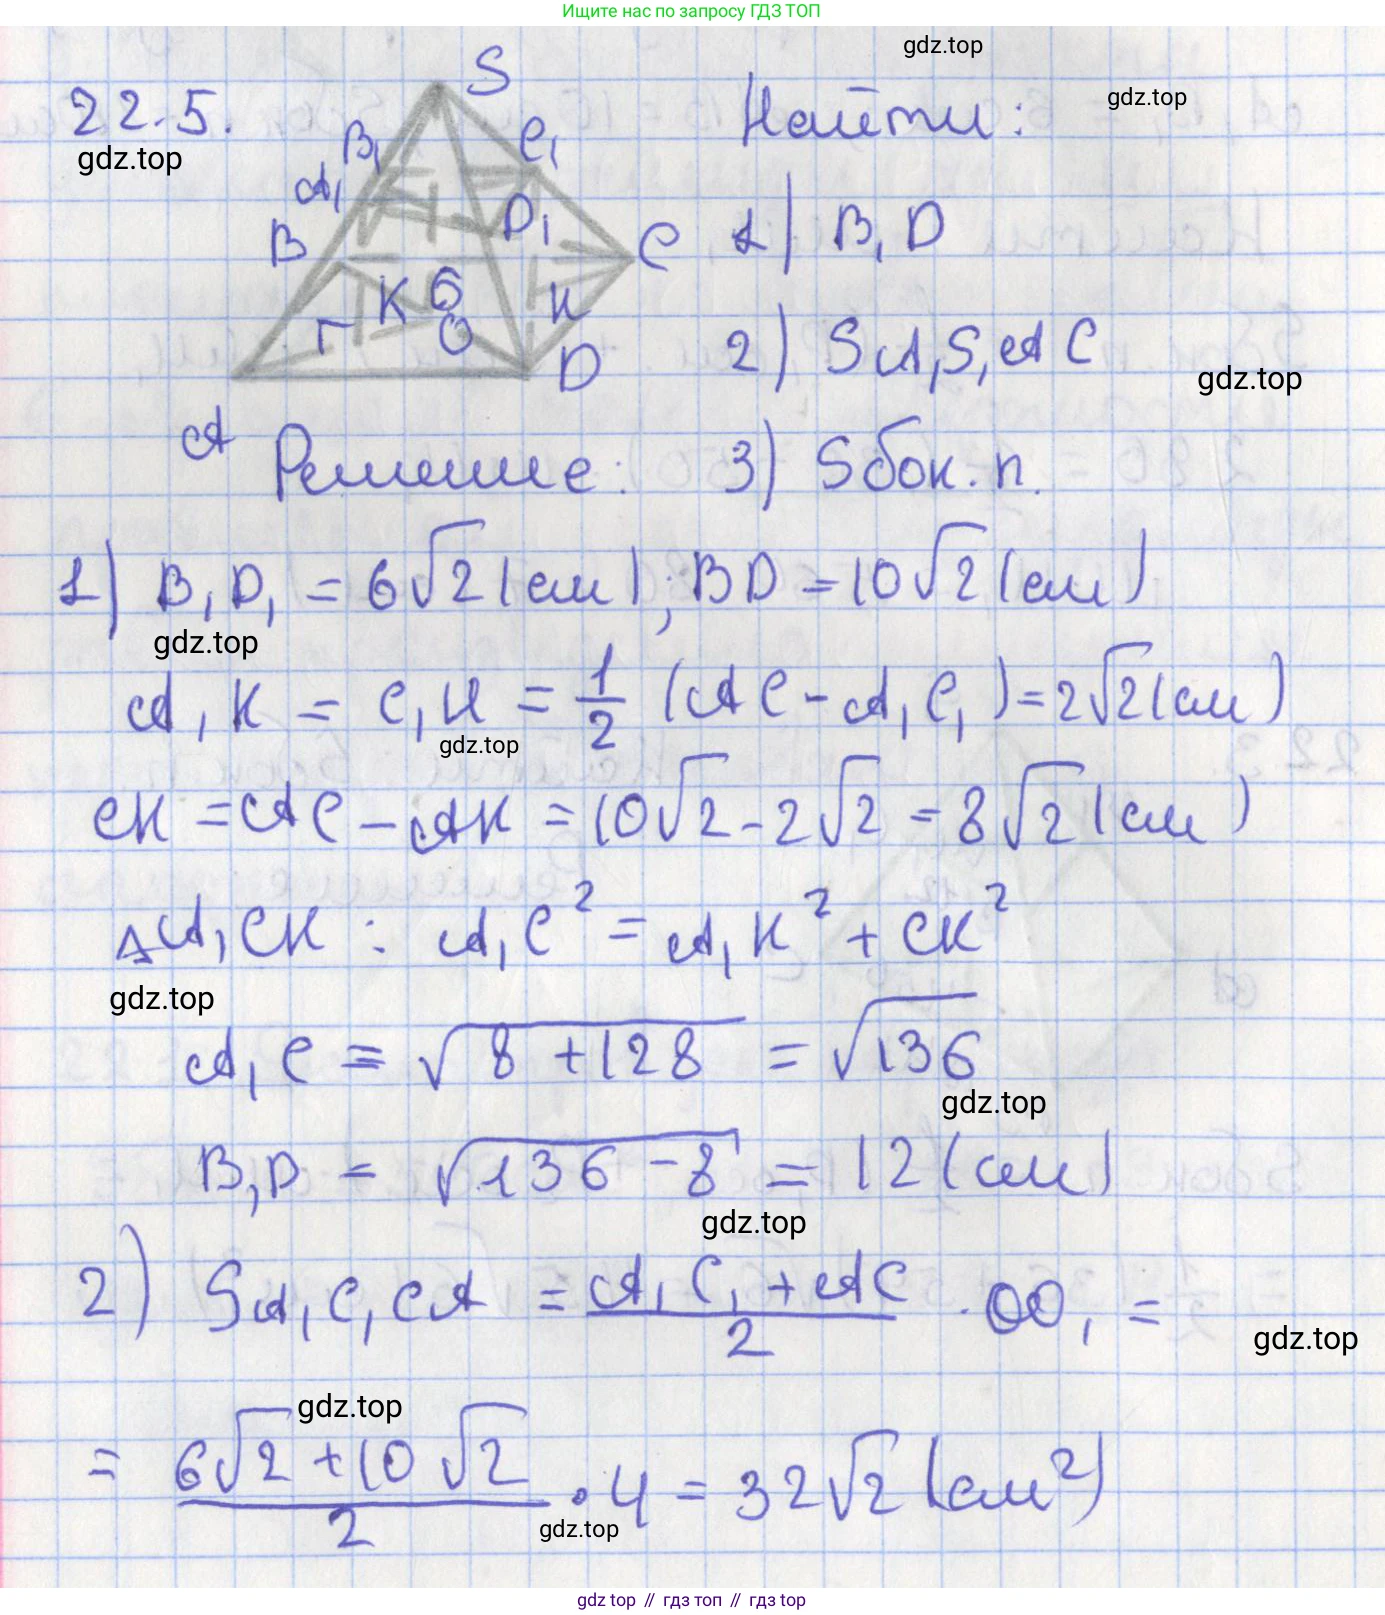 Ищите нас по запросу ГДЗ ТОП
gdz.top
22.5.
gdz.top
S
B₁
C₁
A₁
D₁
B
C
K
O
H
O
D
A
Найти:
gdz.top
1) B₁D
2) SA₁S₁AC
gdz.top
Решение:
3) Sбок.п.
1) B₁D₁ = 6√2 (см); BD = 10√2 (см)
gdz.top
A₁K = C₁H = 1/2 (AC - A₁C₁) = 2√2 (см)
gdz.top
CK = AC - AK = 10√2 - 2√2 = 8√2 (см)
△A₁CK : A₁C² = A₁K² + CK²
gdz.top
A₁C = √8 + 128 = √136
gdz.top
B₁D = √136 - 8 = 12 (см)
gdz.top
2) SA₁C₁CA = A₁C₁ + AC / 2 · OO₁ =
gdz.top
gdz.top
= 6√2 + 10√2 / 2 · 4 = 32√2 (см²)
gdz.top
gdz top // гдз топ // гдз top